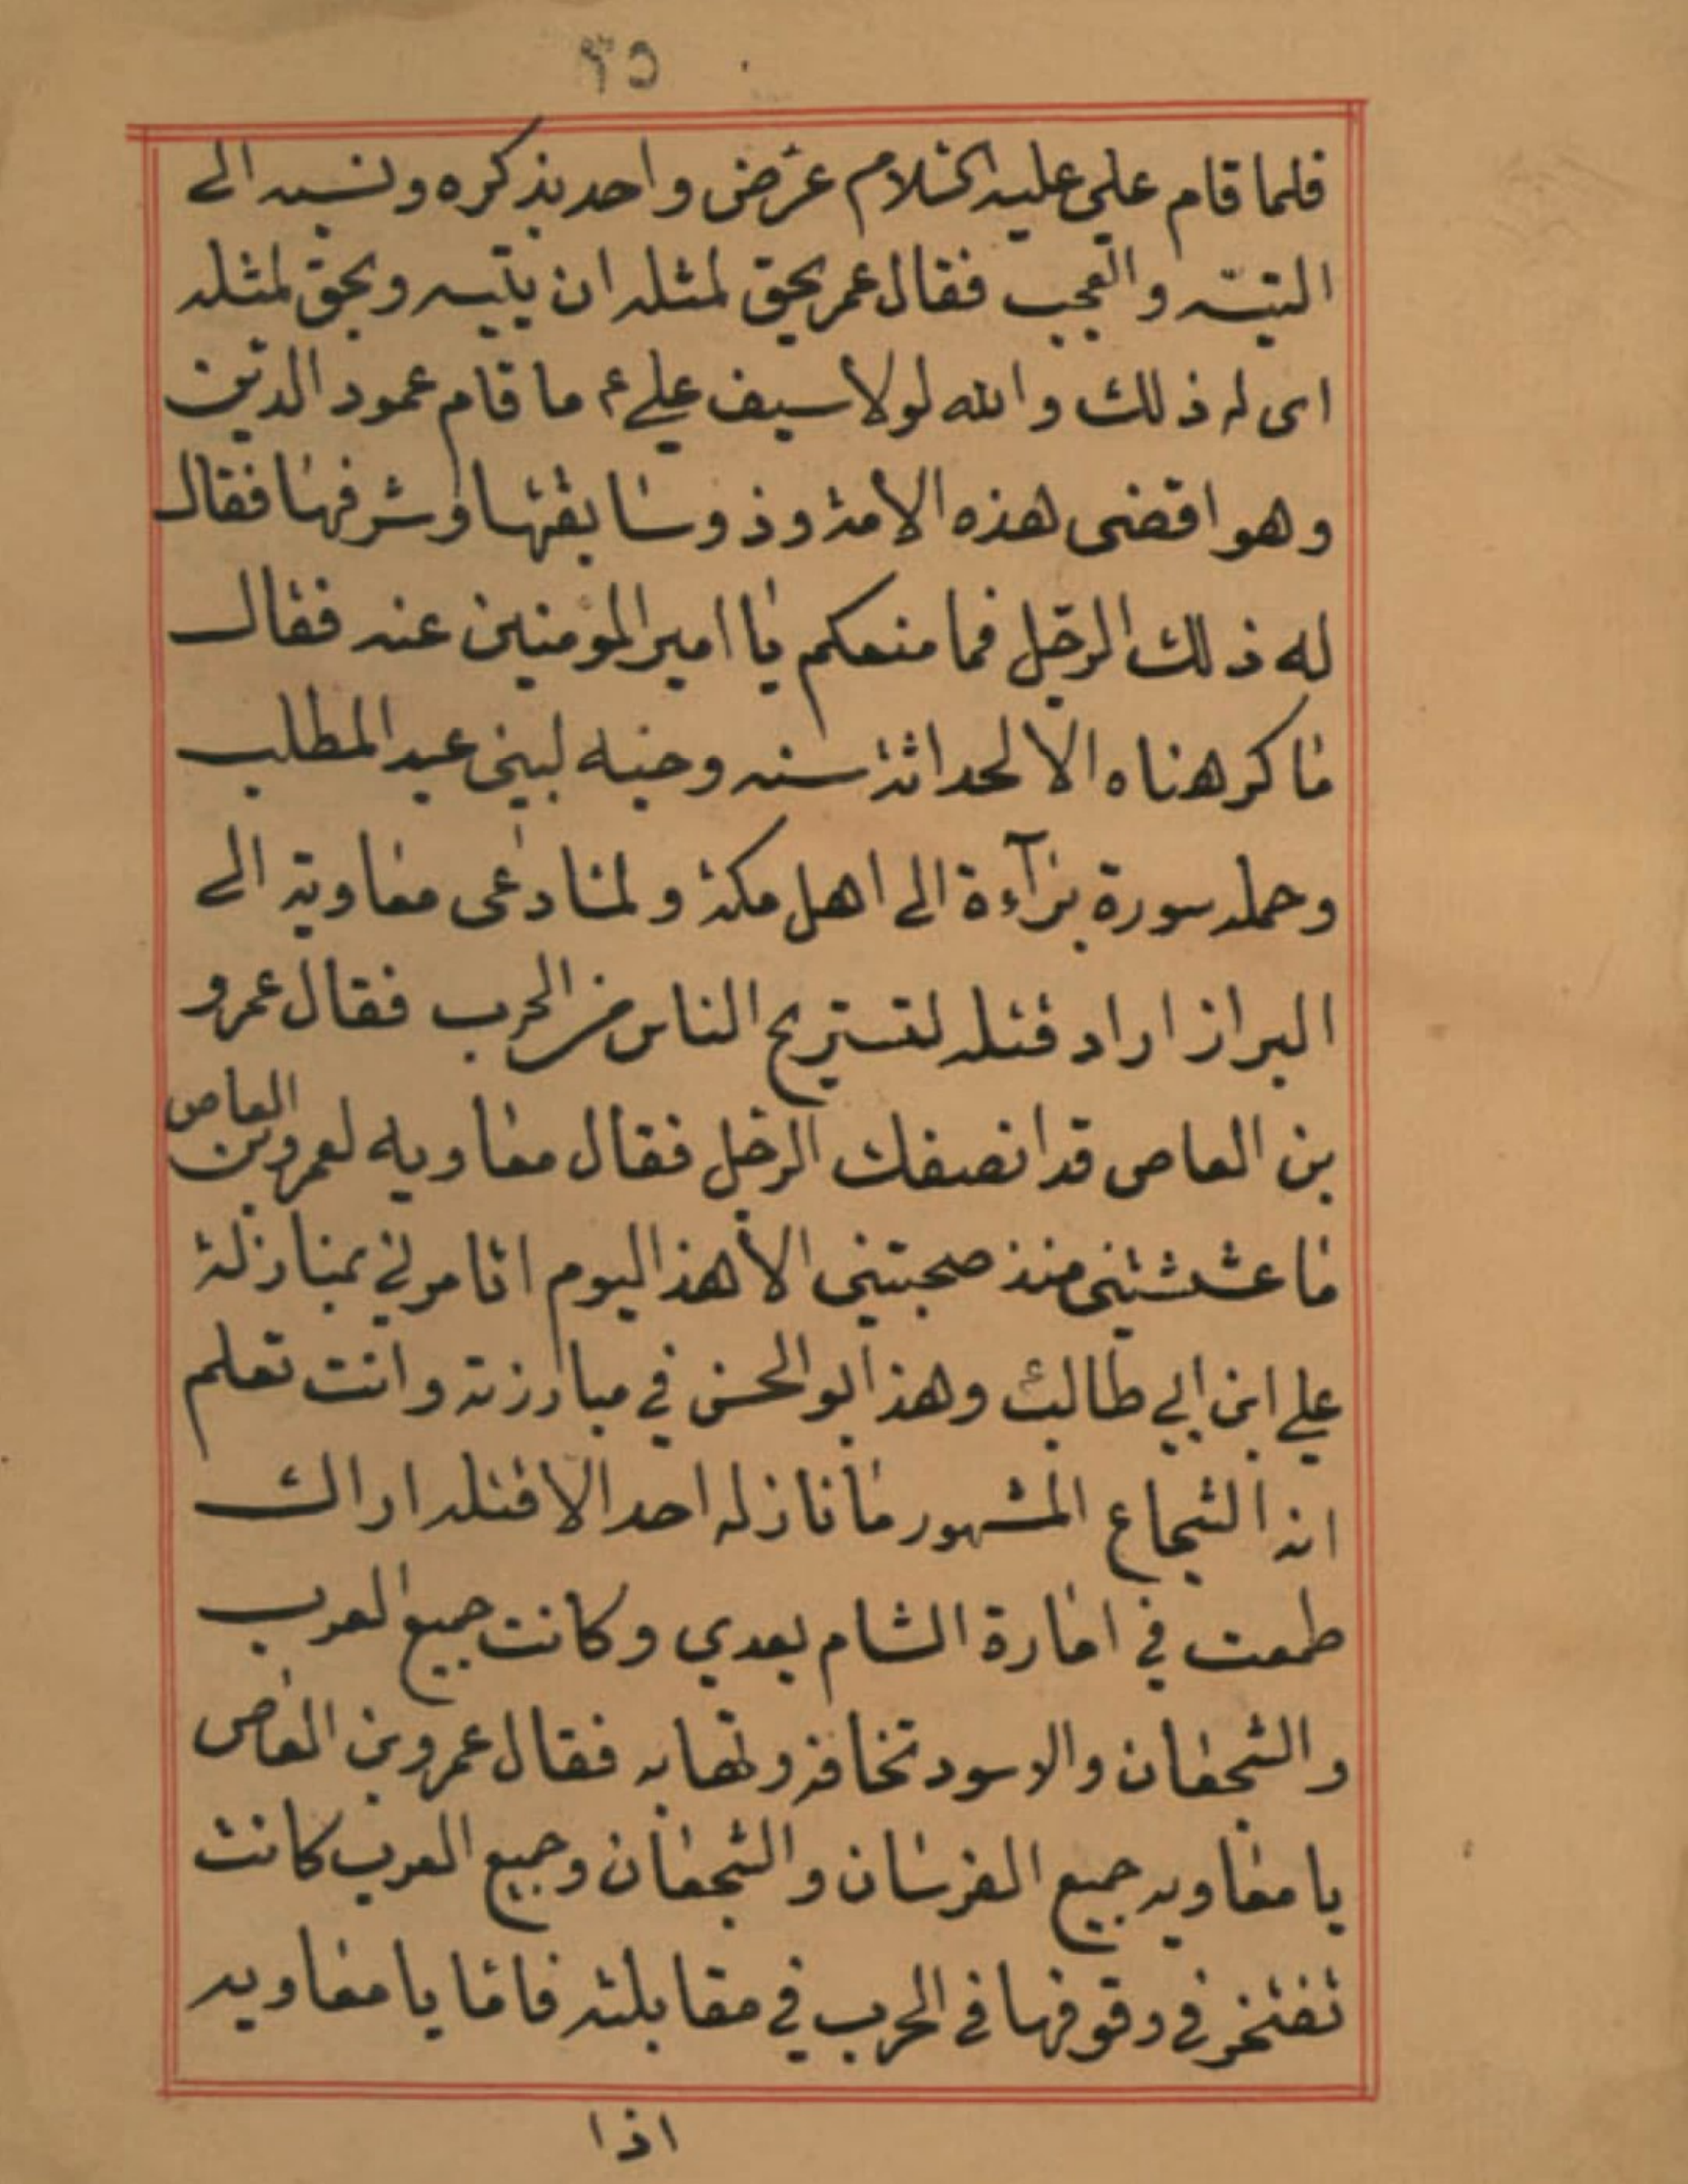 فلما قام علي عليه السلام عرّض واحد بذكره ونسبه الى
التيّه والعجب فقال عمر يحق لمثله ان يتيه ويحق لمثله
اى له ذلك والله لولا سيف علي ع ما قام عمود الدين
وهو اقضى هذه الامة وذو سابقتها وشرفها فقال
له ذلك الرجل فما منعكم يا امير المؤمنين عنه فقال
ما كرهناه الا لحداثة سنه وحبه لبني عبد المطلب
وحمله سورة برآءة الى اهل مكة ولما دعى معاوية الى
البراز اراد قتله لتستريح الناس من الحرب فقال عمرو
بن العاص قد انصفك الرجل فقال معاويه لعمرو بن العاص
ما غششتني منذ صحبتني الا هذا اليوم اتامرني بمنازلة
علي ابن ابي طالب وهذا ابو الحسن في مبارزته وانت تعلم
انه الشجاع المشهور ما نازله احد الا قتله اراك
طمعت في امارة الشام بعدي وكانت جميع العرب
والشجعان والاسود تخافه وتهابه فقال عمرو بن العاص
يا معاويه جميع الفرسان والشجعان وجميع العرب كانت
تفتخر في وقوفها في الحرب في مقابلته فاما يا معاويه
اذا